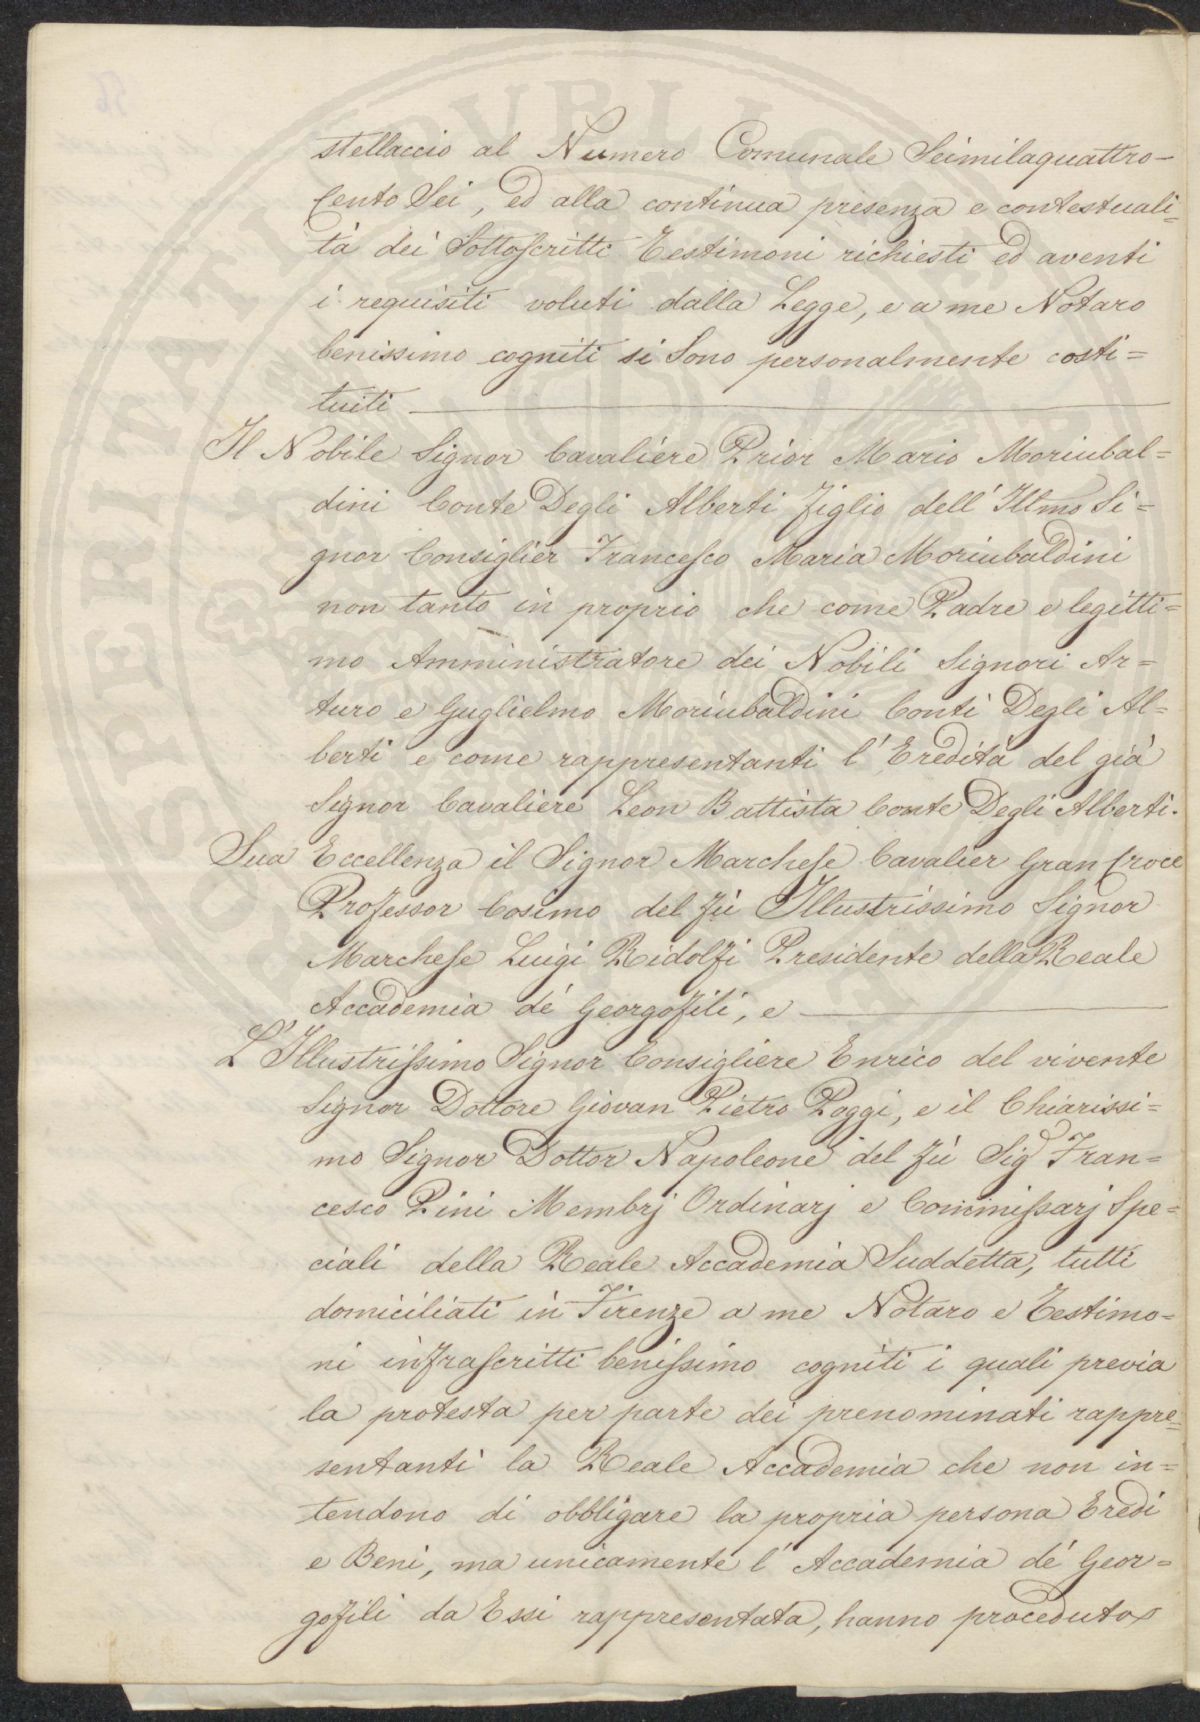 stellaccio al Numero Comunale Seimilaquattro-
cento Sei, ed alla continua presenza e contestuali=
tà dei Sottoscritti Testimoni richiesti ed aventi
i requisiti voluti dalla Legge, e a me Notaro
benissimo cogniti si Sono personalmente costi=
tuiti
Il Nobile Signor Cavaliere Prior Mario Moriubal=
dini Conte Degli Alberti figlio dell' Illmo Si=
gnor Consiglier Francesco Maria Moriubaldini
non tanto in proprio che come Padre e legitti=
mo Amministratore dei Nobili Signori Ar=
turo e Guglielmo Moriubaldini Conti Degli Al=
berti e come rappresentanti l' Eredità del già
Signor Cavaliere Leon Battista Conte Degli Alberti.
Sua Eccellenza il Signor Marchese Cavalier Gran Croce
Professor Cosimo del fù Illustrissimo Signor
Marchese Luigi Ridolfi Presidente della Reale
Accademia de' Georgofili, e
L' Illustrissimo Signor Consigliere Enrico del vivente
Signor Dottore Giovan Pietro Poggi, e il Chiarissi=
mo Signor Dottor Napoleone del fù Sig.r Fran=
cesco Pini Membrj Ordinarj e Commissarj Spe=
ciali della Reale Accademia Suddetta, tutti
domiciliati in Firenze a me Notaro e Testimo=
ni infrascritti benissimo cogniti i quali previa
la protesta per parte dei prenominati rappre=
sentanti la Reale Accademia che non in=
tendono di obbligare la propria persona Eredi
e Beni, ma unicamente l' Accademia de' Geor=
gofili da Essi rappresentata, hanno proceduto
OSPERINATI PVBLI